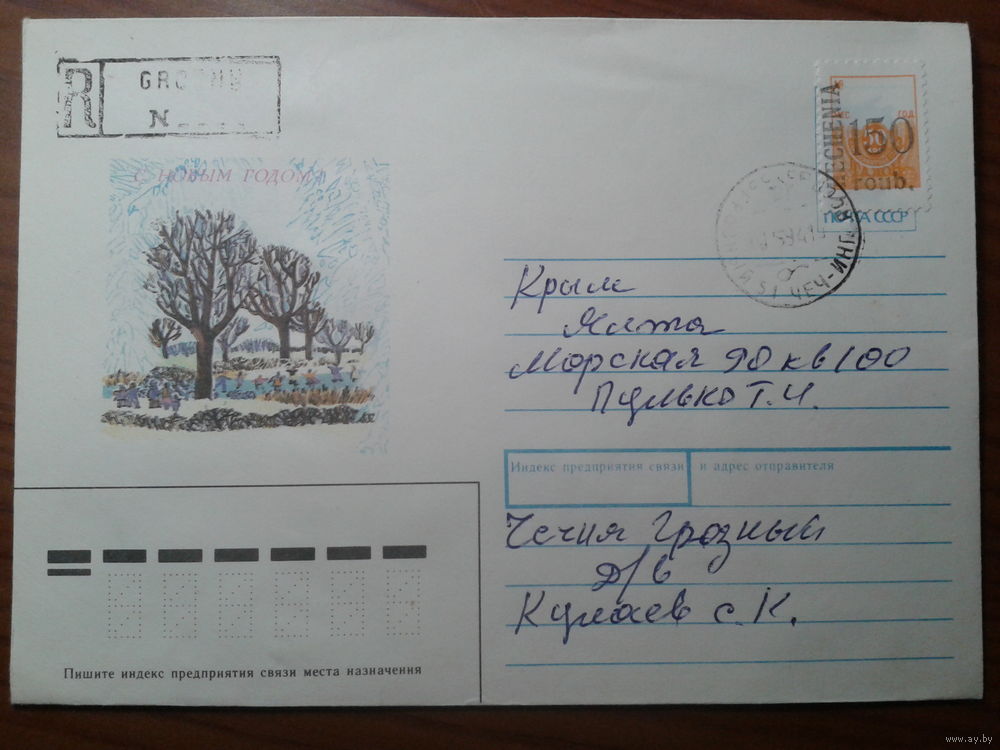 R GROZNY
N
С НОВЫМ ГОДОМ!
CHECHENIA
150
roub.
ГОД
ПОЧТА СССР
ЧЕЧ-ИНГ
Крым
Ялта
Морская 90 кв 100
Пулько Т.И.
Индекс предприятия связи и адрес отправителя
Чечня Грозный
д/в
Кулаев С.К.
Пишите индекс предприятия связи места назначения
www.ay.by